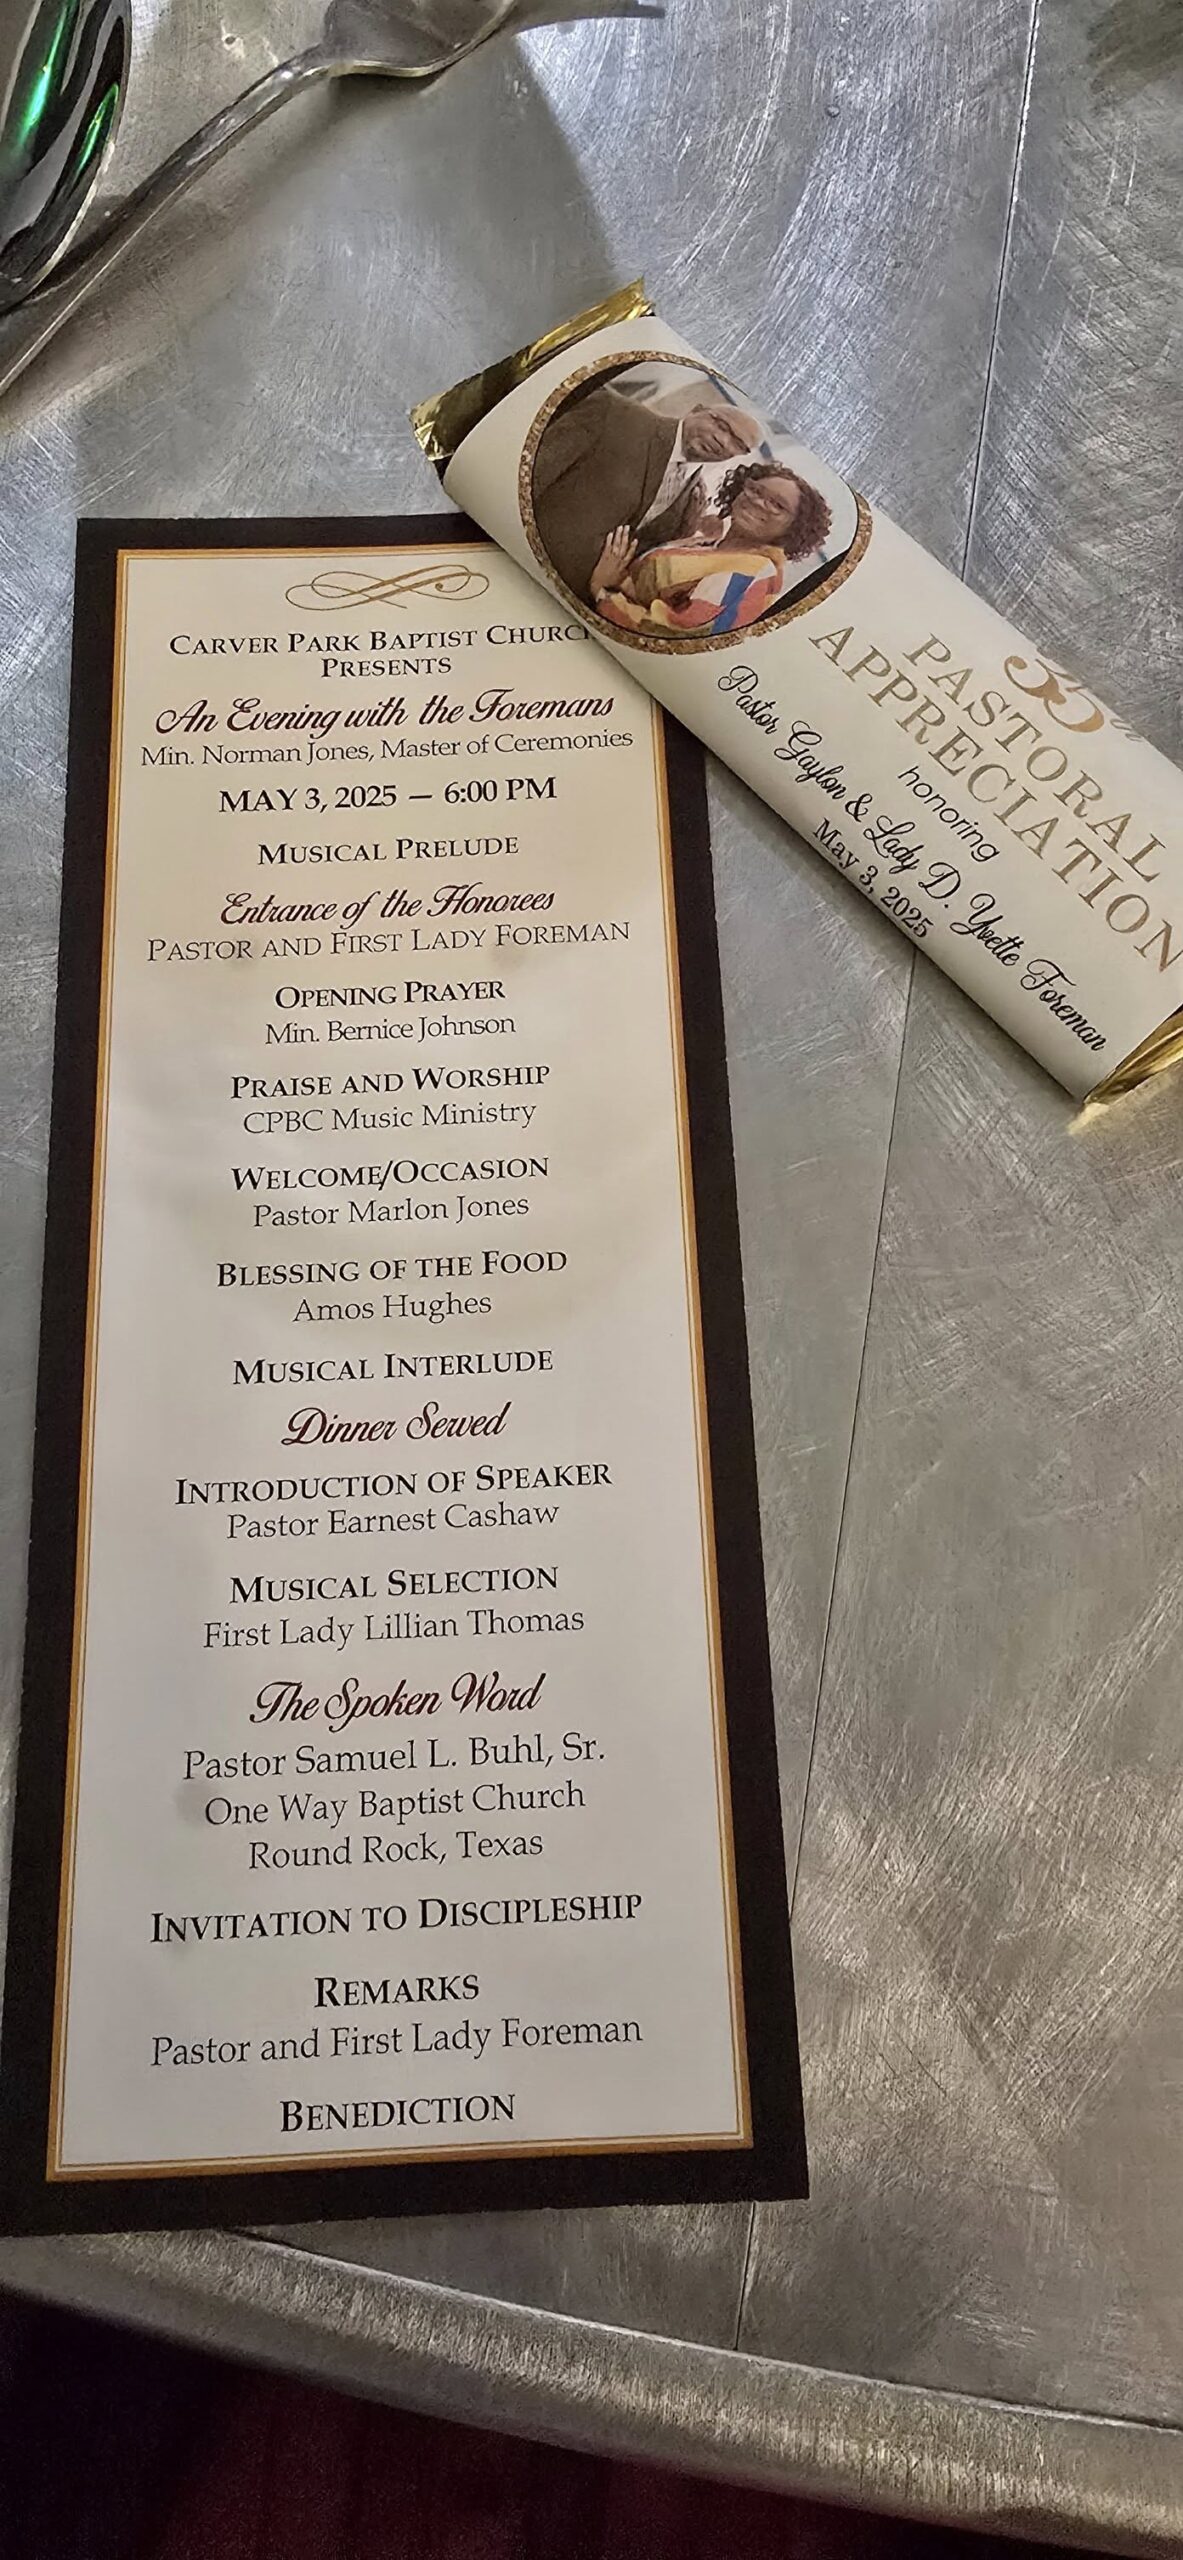 CARVER PARK BAPTIST CHURCH
PRESENTS
An Evening with the Foremans
Min. Norman Jones, Master of Ceremonies
MAY 3, 2025 — 6:00 PM
MUSICAL PRELUDE
Entrance of the Honorees
PASTOR AND FIRST LADY FOREMAN
OPENING PRAYER
Min. Bernice Johnson
PRAISE AND WORSHIP
CPBC Music Ministry
WELCOME/OCCASION
Pastor Marlon Jones
BLESSING OF THE FOOD
Amos Hughes
MUSICAL INTERLUDE
Dinner Served
INTRODUCTION OF SPEAKER
Pastor Earnest Cashaw
MUSICAL SELECTION
First Lady Lillian Thomas
The Spoken Word
Pastor Samuel L. Buhl, Sr.
One Way Baptist Church
Round Rock, Texas
INVITATION TO DISCIPLESHIP
REMARKS
Pastor and First Lady Foreman
BENEDICTION
35th
PASTORAL
APPRECIATION
honoring
Pastor Gaylon & Lady D. Yvette Foreman
May 3, 2025